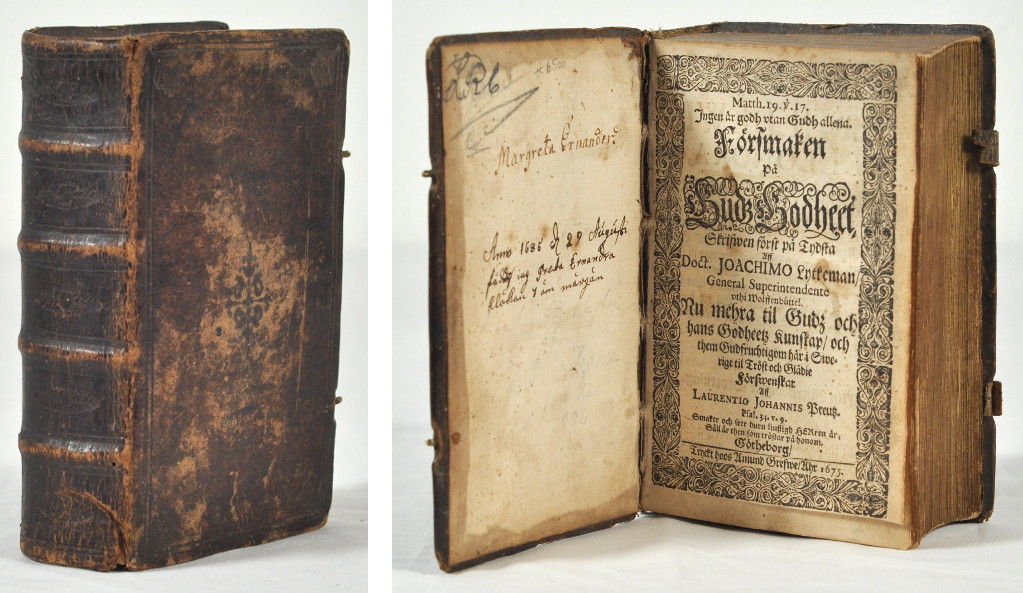 Margreta Ernanders
Anno 1686 d 29 Augusti
föddz iag Greta Ernandra
klockan 4 om mårgån
Matth. 19. v. 17.
Ingen är godh vtan Gudh allena.
Försmaken
på
Gudz Godheet,
Skrifwen först på Tydska
Aff
Doct. JOACHIMO Lytkeman/
General Superintendente
vthi Wolffenbüttel.
Nu mehra til Gudz och
hans Godheetz Kunskap/ och
them Gudfruchtigom här i Swe-
rige til Tröst och Glädie
Förswenskat
Aff
LAURENTIO JOHANNIS Preutz.
Psal. 34. v. 9.
Smaker och seer huru liufligh HERren är;
Säll är then som tröstar på honom.
Götheborg/
Tryckt hoos Amund Grefwe/ Åhr 1675.